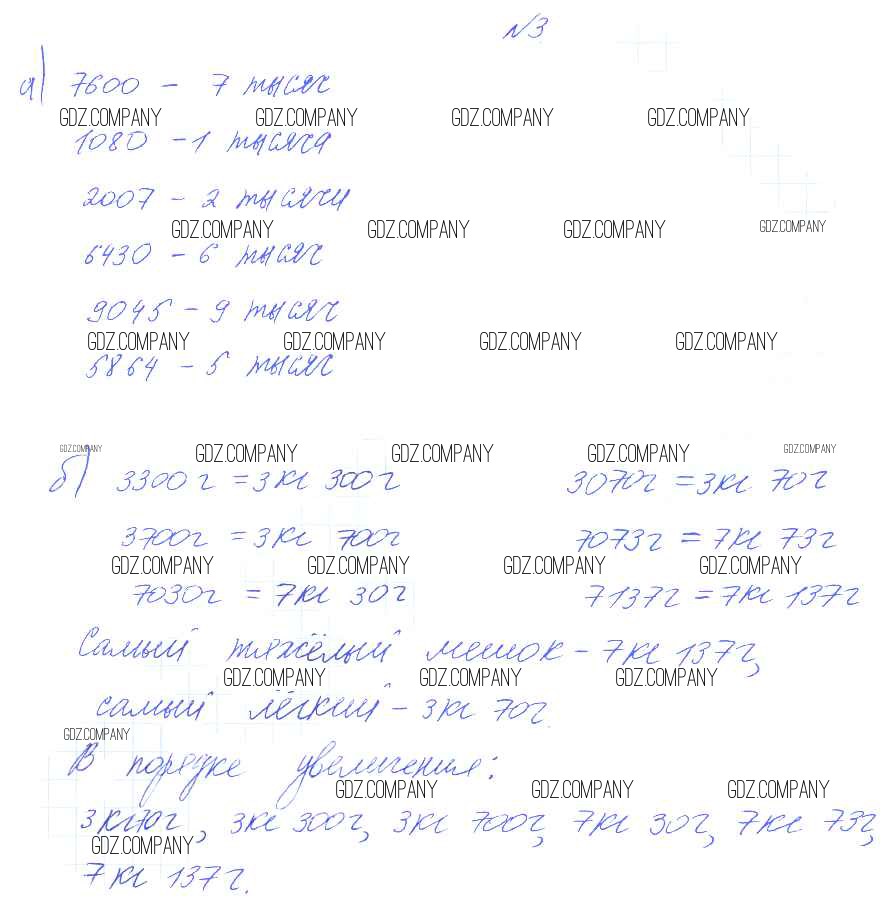 №3
а) 7600 – 7 тысяч
GDZ.COMPANY GDZ.COMPANY GDZ.COMPANY GDZ.COMPANY
1080 – 1 тысяча
2007 – 2 тысячи
GDZ.COMPANY GDZ.COMPANY GDZ.COMPANY GDZ.COMPANY
6430 – 6 тысяч
9045 – 9 тысяч
GDZ.COMPANY GDZ.COMPANY GDZ.COMPANY GDZ.COMPANY
5864 – 5 тысяч
GDZ.COMPANY GDZ.COMPANY GDZ.COMPANY GDZ.COMPANY GDZ.COMPANY
б) 3300 г = 3 кг 300 г 3070 г = 3 кг 70 г
3700 г = 3 кг 700 г 7073 г = 7 кг 73 г
GDZ.COMPANY GDZ.COMPANY GDZ.COMPANY GDZ.COMPANY
7030 г = 7 кг 30 г 7137 г = 7 кг 137 г
Самый тяжёлый мешок – 7 кг 137 г,
GDZ.COMPANY GDZ.COMPANY GDZ.COMPANY
самый лёгкий – 3 кг 70 г.
GDZ.COMPANY
В порядке увеличения:
GDZ.COMPANY GDZ.COMPANY GDZ.COMPANY
3 кг 70 г, 3 кг 300 г, 3 кг 700 г, 7 кг 30 г, 7 кг 73 г,
GDZ.COMPANY
7 кг 137 г.